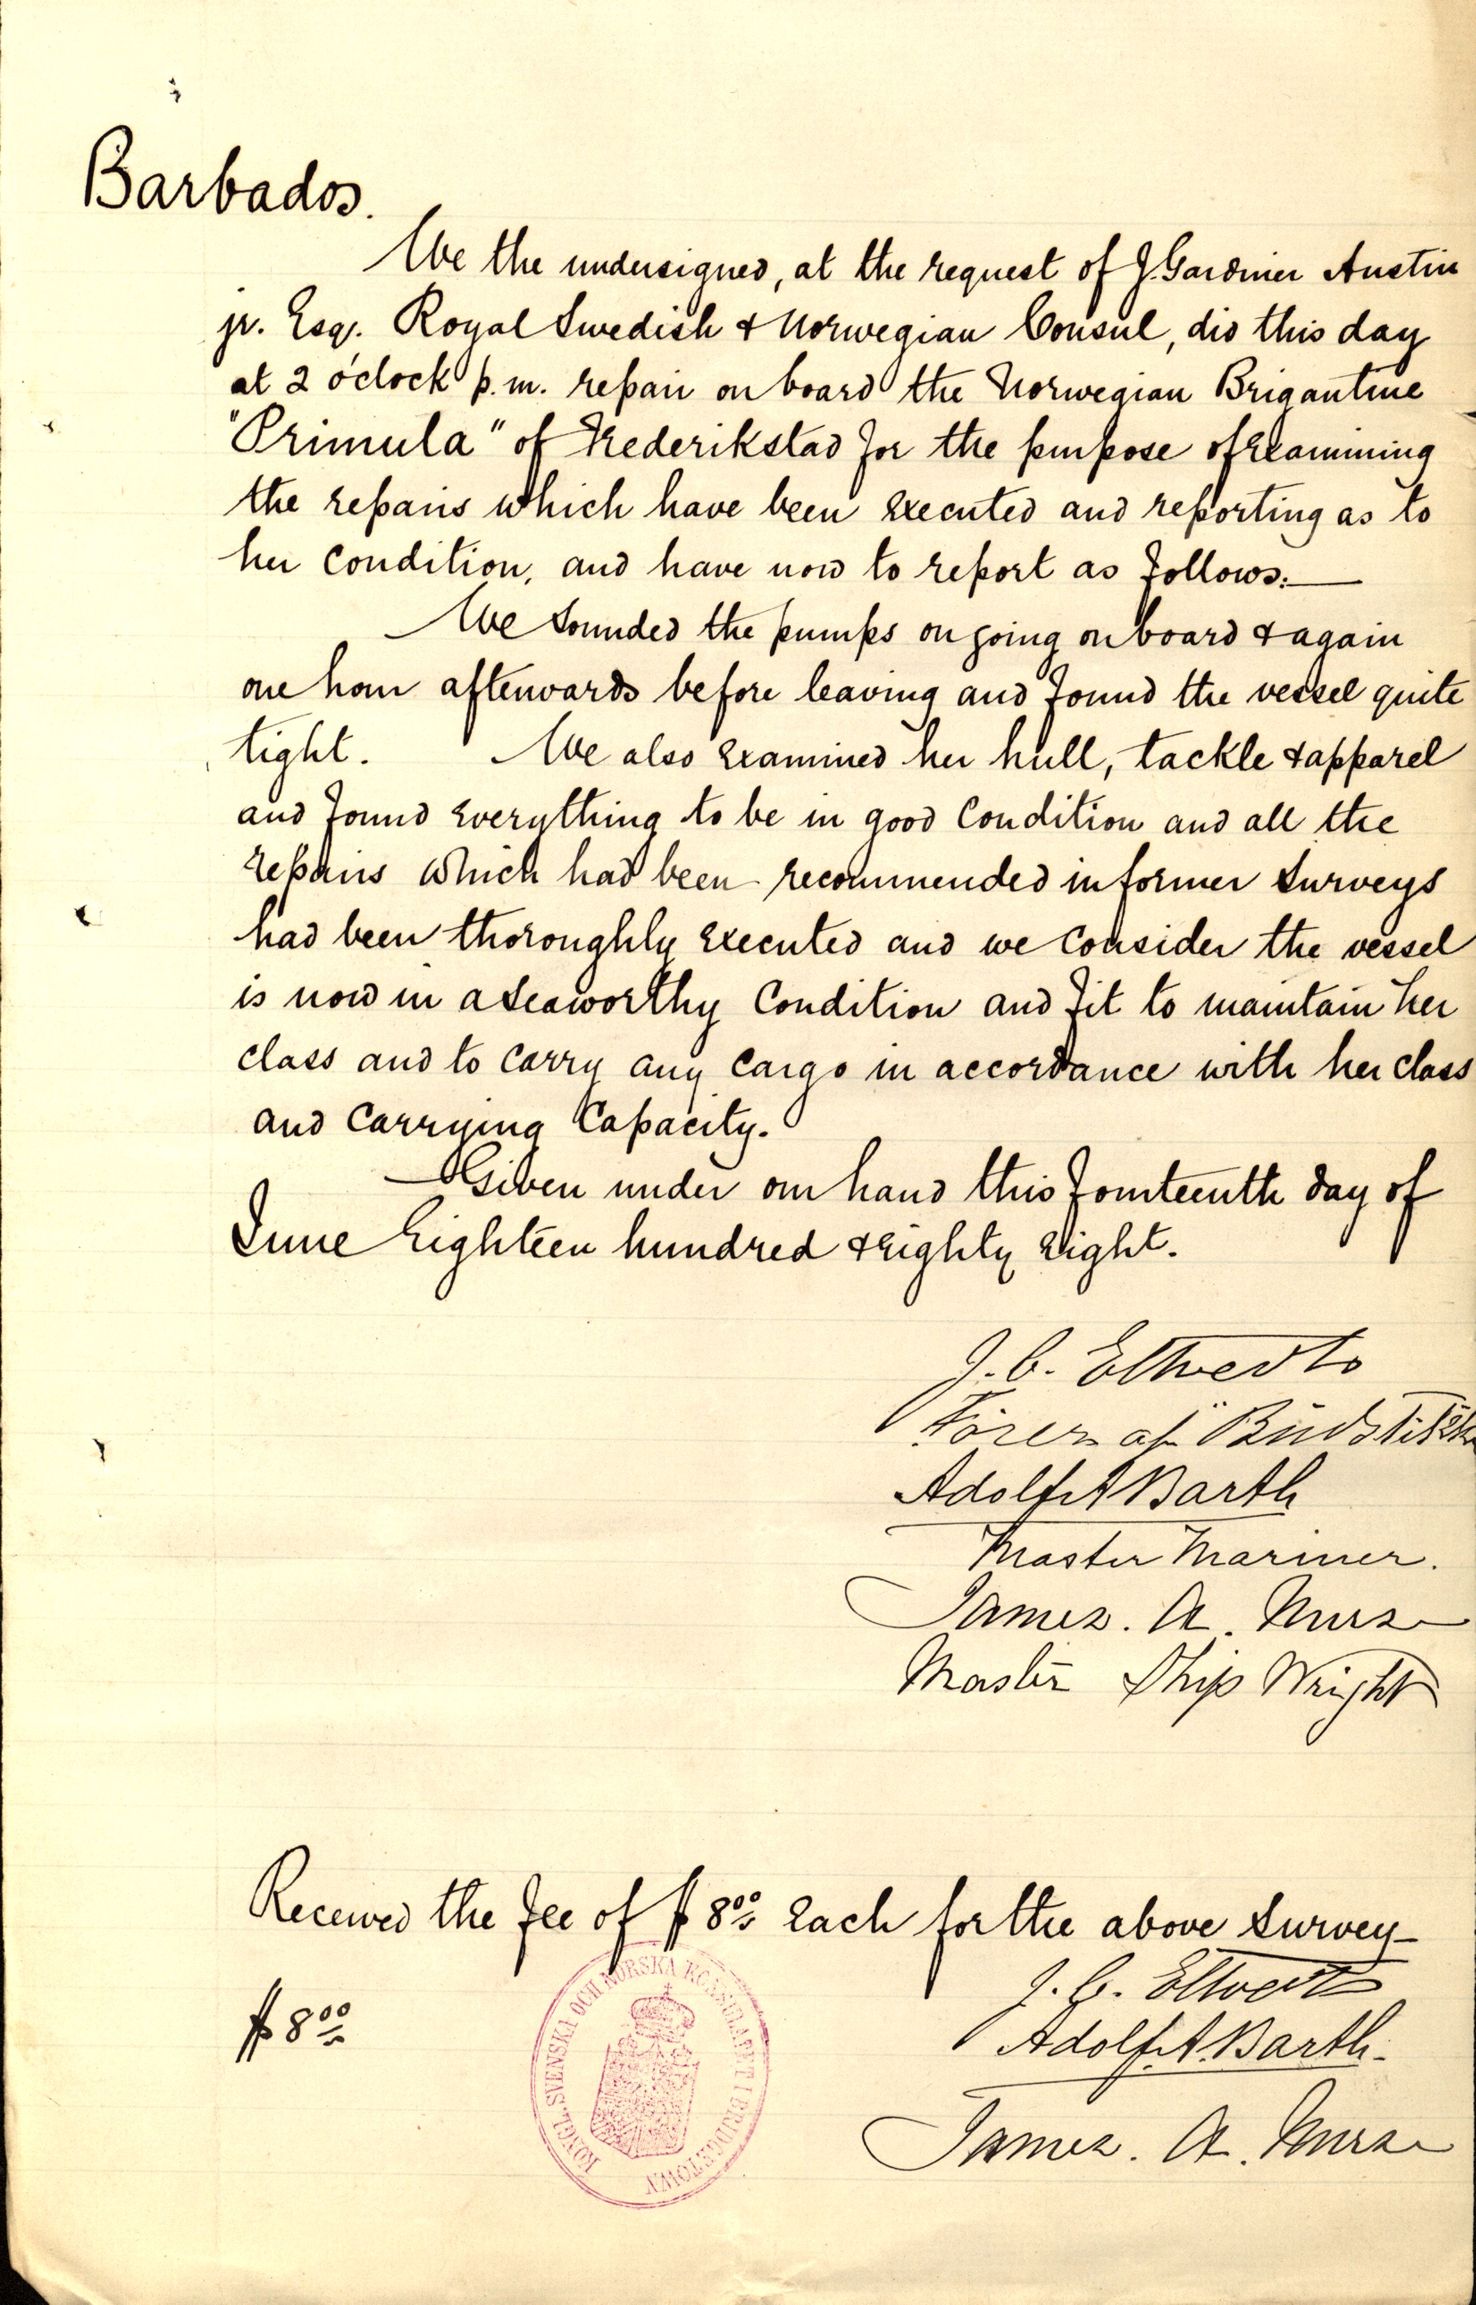 Barbados.
We the undersigned, at the request of J. Gardiner Austin
jr. Esq. Royal Swedish & Norwegian Consul, did this day
at 2 o'clock p.m. repair on board the Norwegian Brigantine
"Primula" of Frederikstad for the purpose of examining
the repairs which have been executed and reporting as to
her condition, and have now to report as follows:—
We sounded the pumps on going on board & again
one hour afterwards before leaving and found the vessel quite
tight. We also examined her hull, tackle & apparel
and found everything to be in good condition and all the
repairs which had been recommended in former surveys
had been thoroughly executed and we consider the vessel
is now in a seaworthy condition and fit to maintain her
class and to carry any cargo in accordance with her class
and carrying capacity.
Given under our hand this fourteenth day of
June Eighteen hundred & eighty eight.
J. C.
Fører af
Adolf A Barth
Master Mariner.
James. A. Nurse
Master Ship Wright
Received the fee of $8.00 each for the above survey
J. C.
$8.00
Adolf. A. Barth.
James. A. Nurse
KONGL. SVENSKA OCH NORSKA KONSULATET I BRIDGETOWN